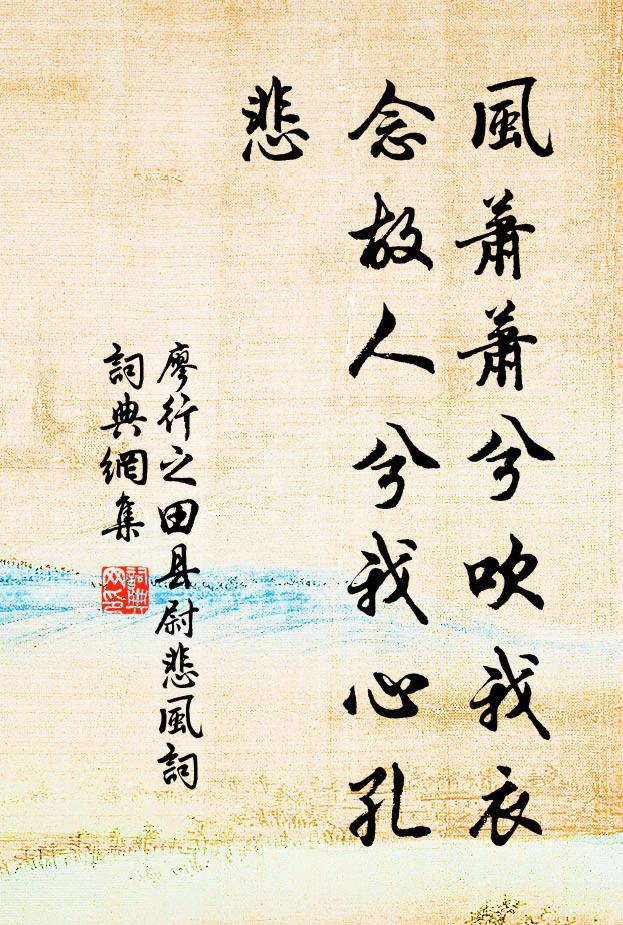 風蕭蕭兮吹我衣
念故人兮我心孔
悲
廖行之田县尉悲風詞
詞典網集